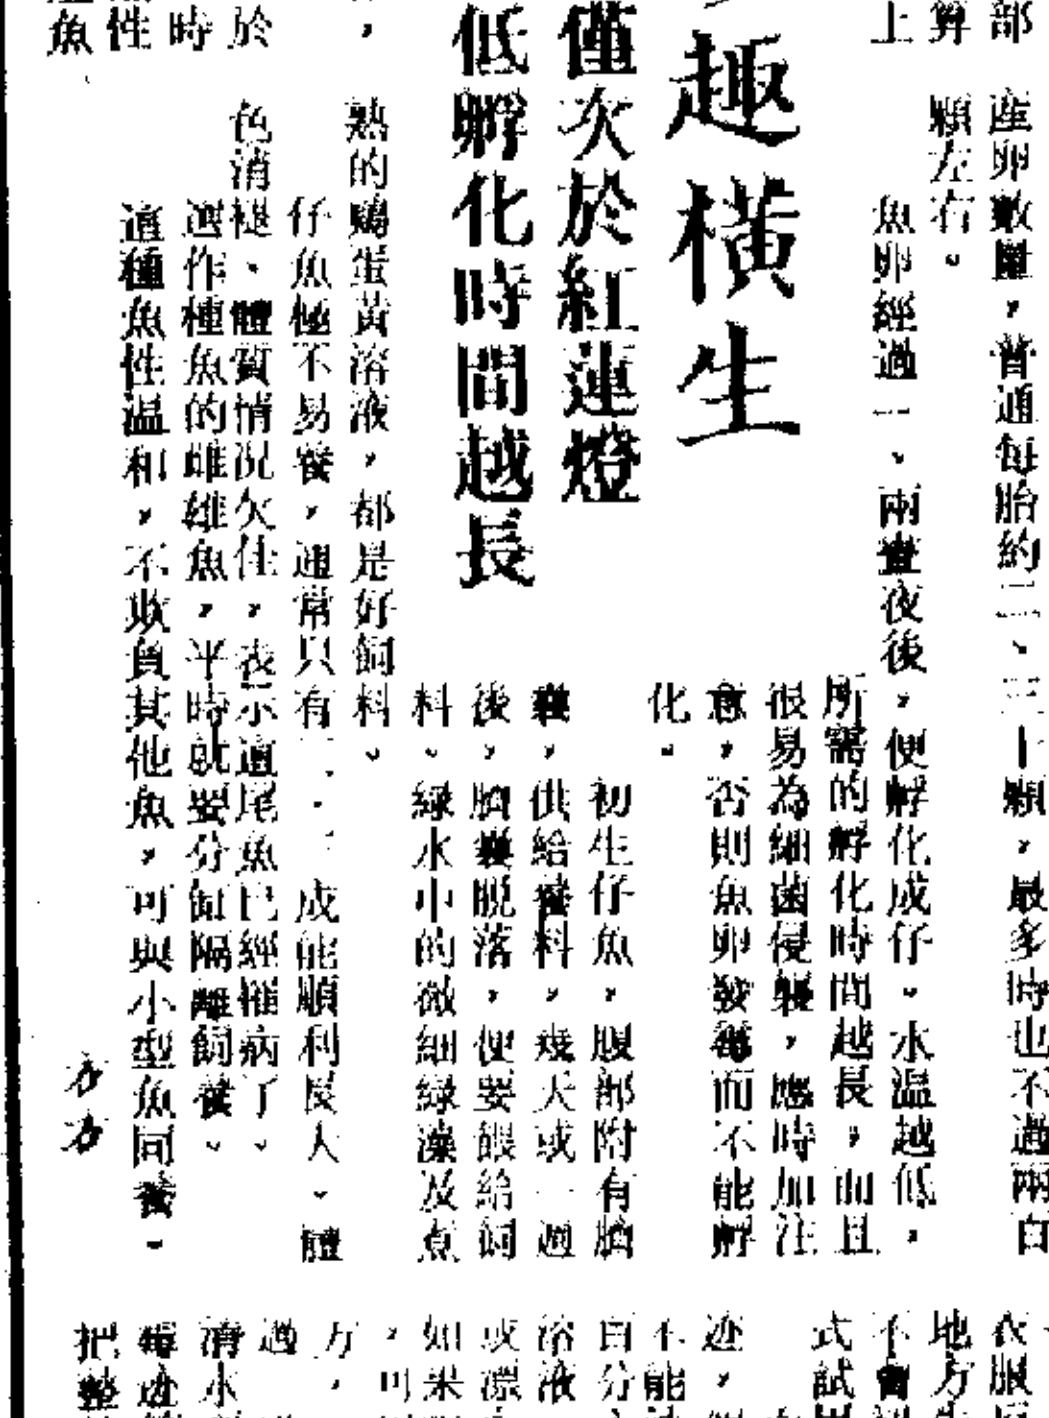 部
算
上
趣橫生
僅次於紅蓮燈
低孵化時間越長
，
於
時
性
魚
產卵數量，普通每胎約二、三十顆，最多時也不過兩百
顆左右。
魚卵經過一、兩晝夜後，便孵化成仔。水温越低，
所需的孵化時間越長，而且
很易為細菌侵襲，應時加注
意，否則魚卵發霉而不能孵
化。
初生仔魚，腹部附有臍
囊，供給養料，幾天或一週
後，臍囊脫落，便要餵給飼
料。綠水中的微細綠藻及煮
熟的鷄蛋黃溶液，都是好飼料。
仔魚極不易養，通常只有一．二成能順利長大。體
色消褪、體質情況欠佳，表示這尾魚已經罹病了。
選作種魚的雌雄魚，平時就要分缸隔離飼養。
這種魚性温和，不欺負其他魚，可與小型魚同養。
方方
衣服
地方
不會
式試
迹，
不能
百分
溶液
或漂
如果
，可
方，
過
清水
霉迹
把整